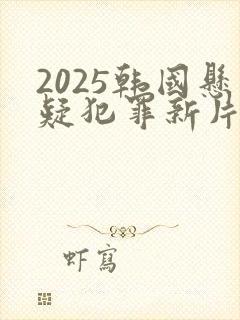 2025韩国懸
疑犯罪新片
虾寫